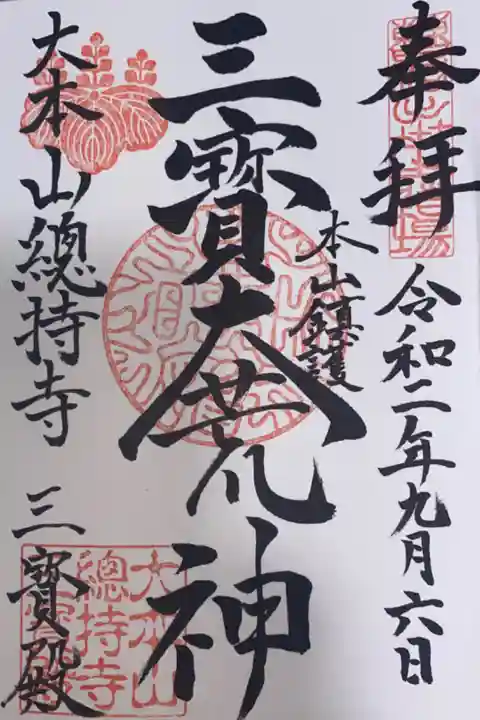 奉拝
令和二年九月六日
本山鎮護
三寳大荒神
大本山總持寺
三寳殿
大本山
總持寺